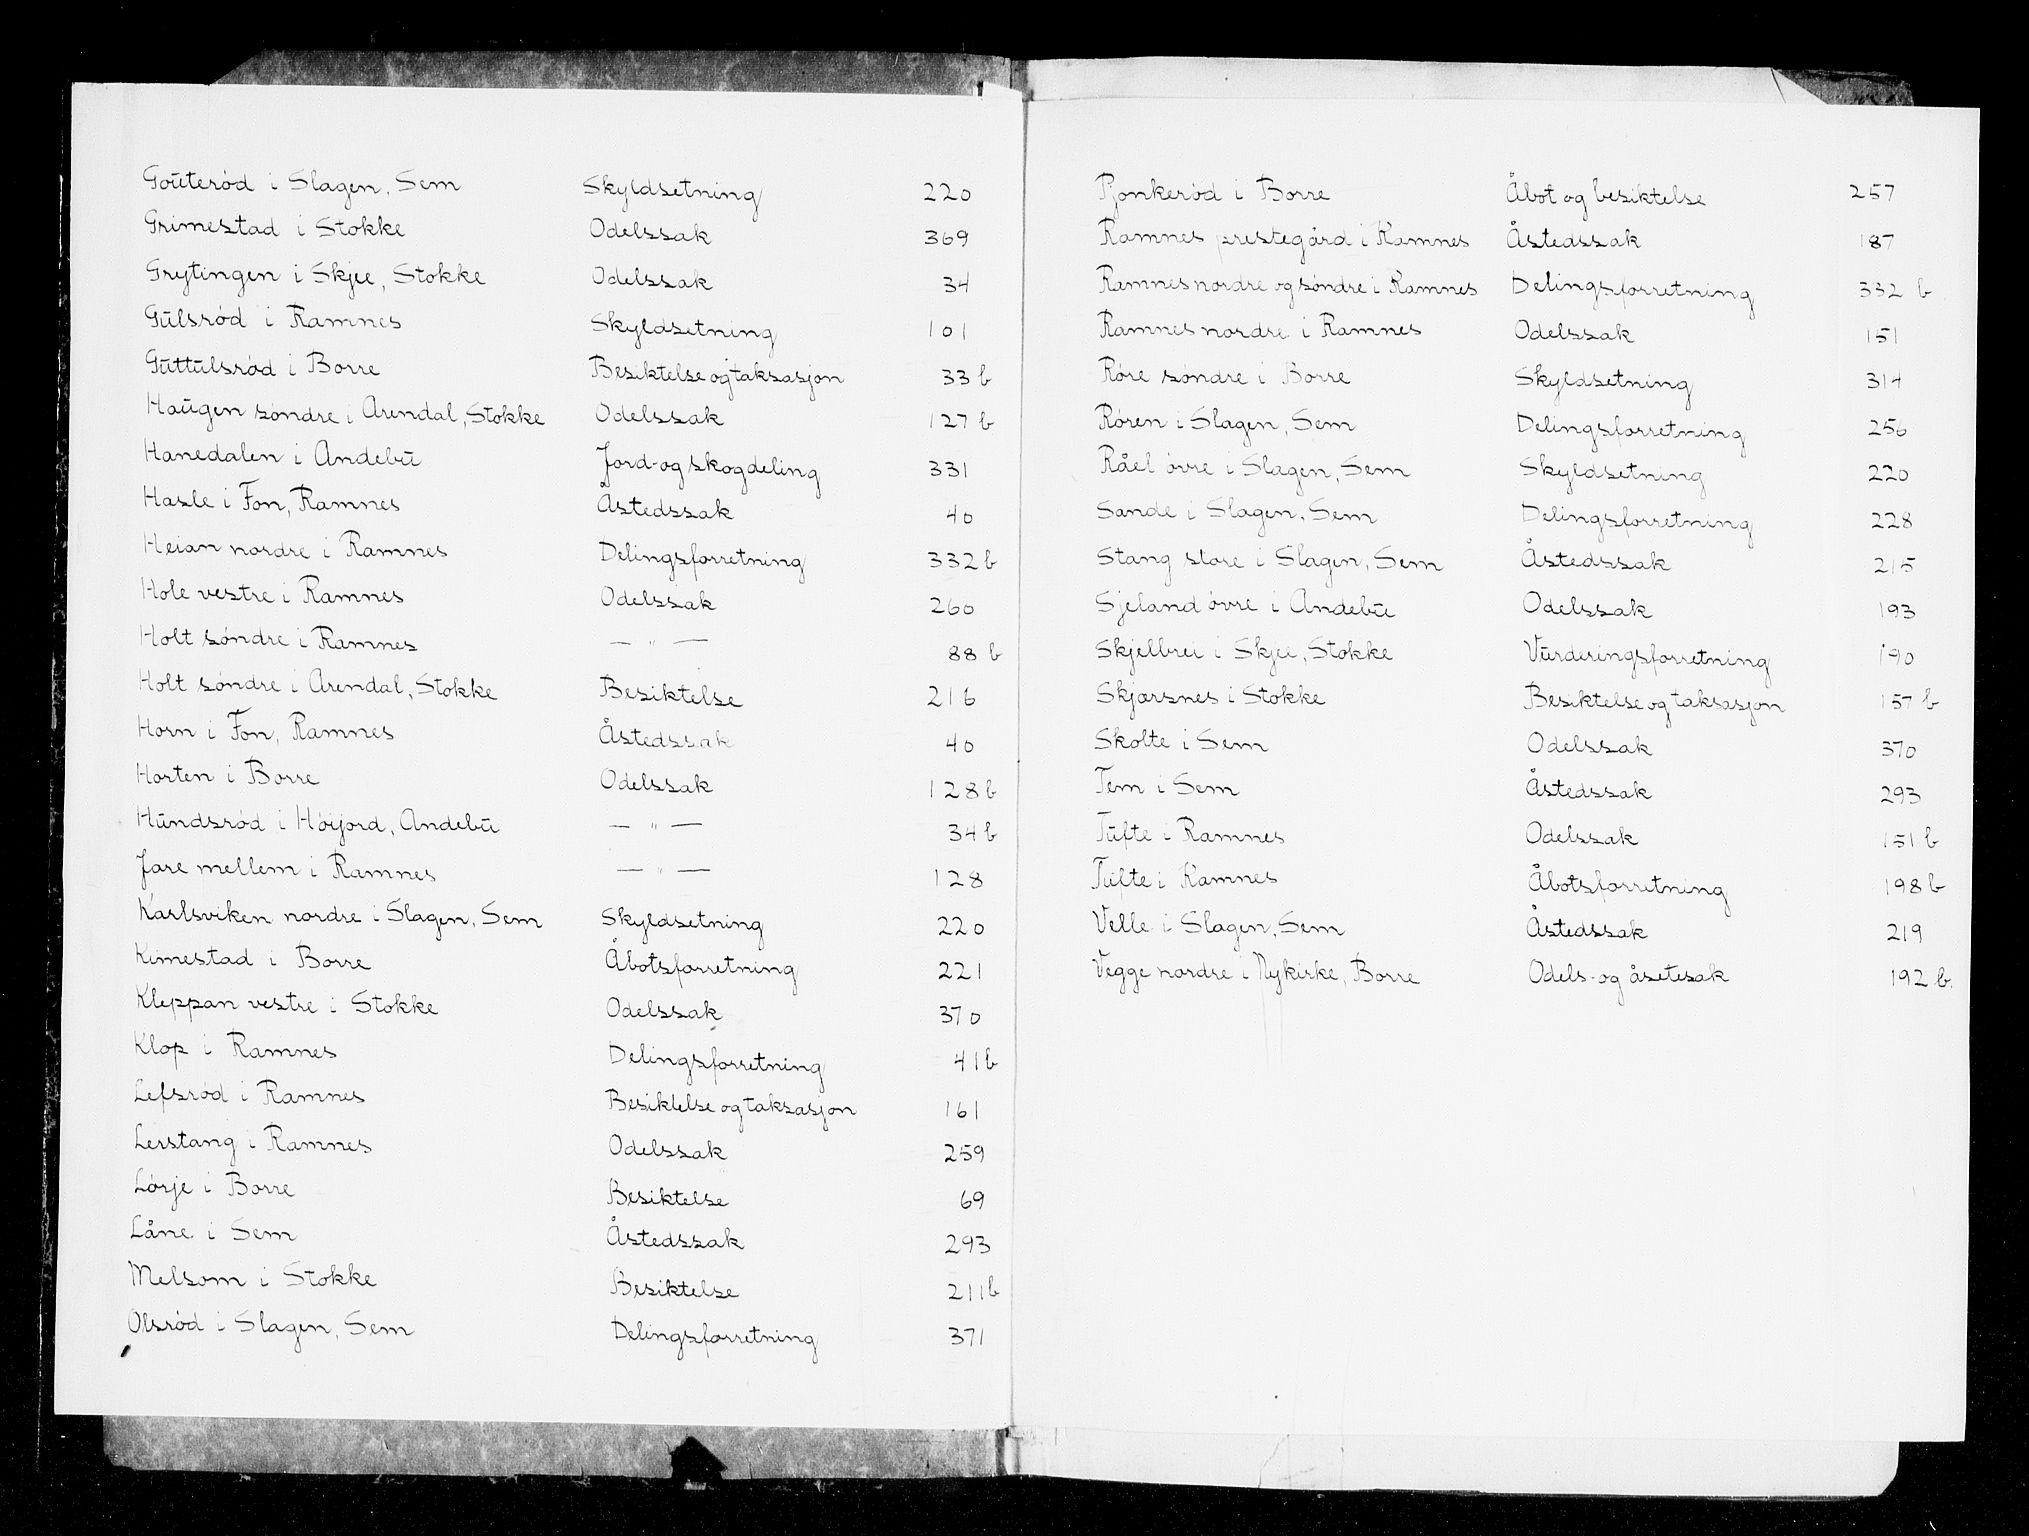 Gouterød i Slagen, Sem Skyldsetning 220
Grimestad i Stokke Odelssak 369
Grytingen i Skjee, Stokke Odelssak 34
Gulsrød i Ramnes Skyldsetning 101
Guttulsrød i Borre Besiktelse og taksasjon 33 b
Haugen søndre i Arendal, Stokke Odelssak 127 b
Hanedalen i Andebu Jord- og skogdeling 331
Hasle i Fon, Ramnes Åstedssak 40
Heian nordre i Ramnes Delingsforretning 332 b
Hole vestre i Ramnes Odelssak 260
Holt søndre i Ramnes — " — 88 b
Holt søndre i Arendal, Stokke Besiktelse 216
Horn i Fon, Ramnes Åstedssak 40
Horten i Borre Odelssak 128 b
Hundsrød i Høijord, Andebu — " — 34 b
Jare mellem i Ramnes — " — 128
Karlsviken nordre i Slagen, Sem Skyldsetning 220
Kimestad i Borre Åbotsforretning 221
Kleppan vestre i Stokke Odelssak 370
Klop i Ramnes Delingsforretning 41 b
Lefsrød i Ramnes Besiktelse og taksasjon 161
Lerstang i Ramnes Odelssak 259
Lørje i Borre Besiktelse 69
Låne i Sem Åstedssak 293
Melsom i Stokke Besiktelse 211 b
Olsrød i Slagen, Sem Delingsforretning 371
Pjonkerød i Borre Åbot og besiktelse 257
Ramnes prestegård i Ramnes Åstedssak 187
Ramnes nordre og søndre i Ramnes Delingsforretning 332 b
Ramnes nordre i Ramnes Odelssak 151
Røre søndre i Borre Skyldsetning 314
Røren i Slagen, Sem Delingsforretning 256
Råel øvre i Slagen, Sem Skyldsetning 220
Sande i Slagen, Sem Delingsforretning 228
Stang store i Slagen, Sem Åstedssak 215
Sjeland øvre i Andebu Odelssak 193
Skjelbrei i Skjee, Stokke Vurderingsforretning 190
Skjærsnes i Stokke Besiktelse og taksasjon 157 b
Skolte i Sem Odelssak 370
Tem i Sem Åstedssak 293
Tufte i Ramnes Odelssak 151 b
Tufte i Ramnes Åbotsforretning 198 b
Velle i Slagen, Sem Åstedssak 219
Vegge nordre i Nykirke, Borre Odels- og åsetesak 192 b.